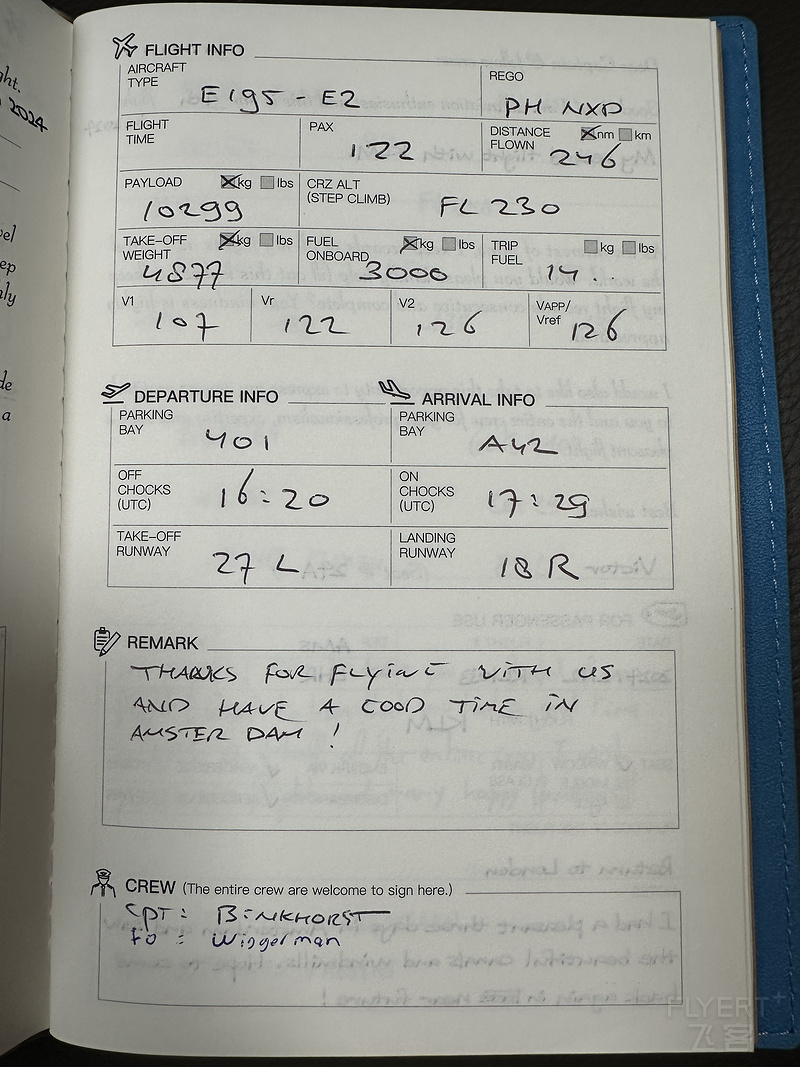 ght.
2024
FLIGHT INFO
AIRCRAFT TYPE E195-E2
REGO PH NXD
FLIGHT TIME
PAX 122
DISTANCE FLOWN nm km 246
PAYLOAD kg lbs 10299
CRZ ALT (STEP CLIMB) FL 230
TAKE-OFF WEIGHT kg lbs 4877
FUEL ONBOARD kg lbs 3000
TRIP FUEL kg lbs 14..
V1 107
Vr 122
V2 126
VAPP/Vref 126
DEPARTURE INFO
ARRIVAL INFO
PARKING BAY 401
PARKING BAY A42
OFF CHOCKS (UTC) 16:20
ON CHOCKS (UTC) 17:29
TAKE-OFF RUNWAY 27 L
LANDING RUNWAY 18 R
REMARK
THANKS FOR FLYING WITH US
AND HAVE A GOOD TIME IN
AMSTERDAM !
CREW (The entire crew are welcome to sign here.)
CPT: BINKHORST
FO: Wiggerman
FLYERT+
飞客